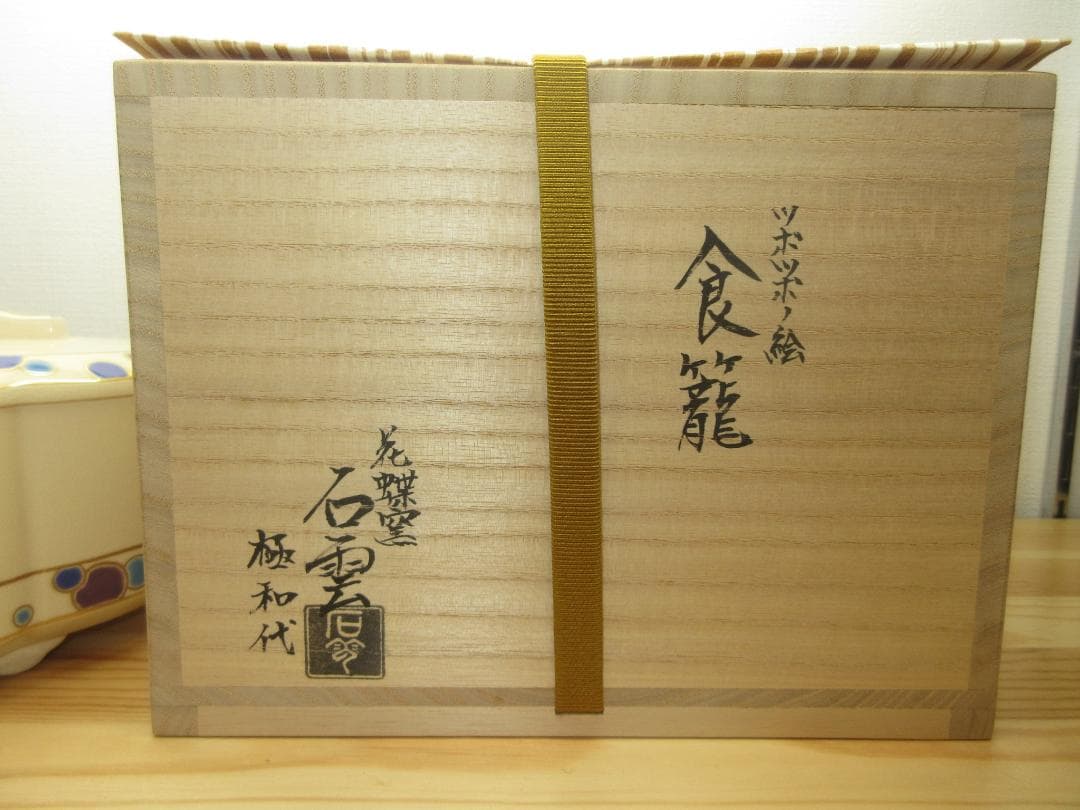 ツボツボノ絵
食籠
花蝶窯
石雲
極和代